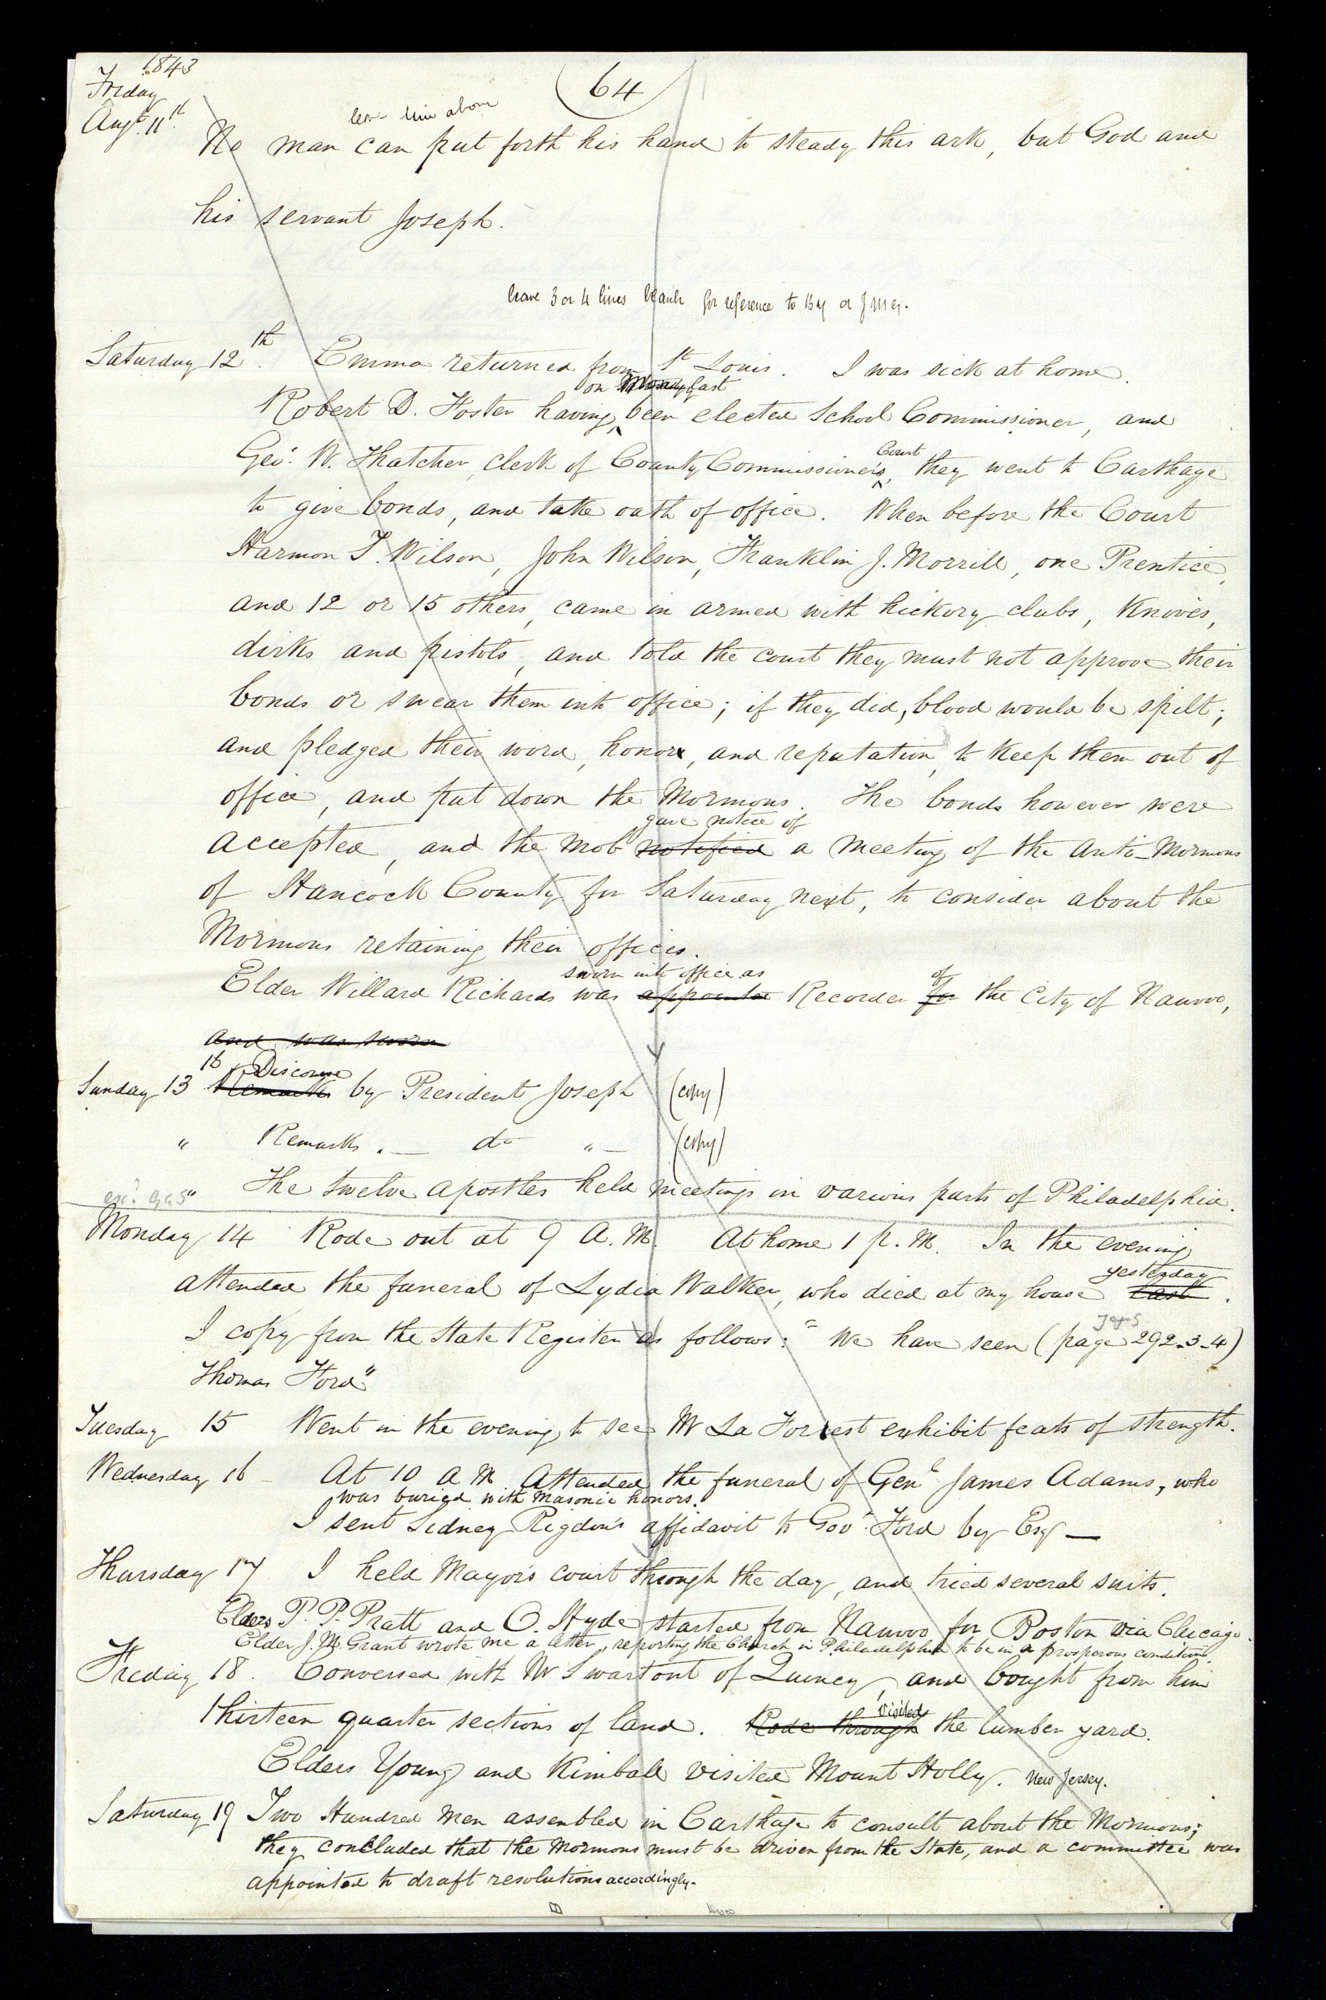 1843
(64)
Friday
Augt. 11th.
leave line above
No man can put forth his hand to steady this ark, but God and
his servant Joseph.
leave 3 or 4 lines blank for reference to By or
Saturday 12th. Emma returned from St Louis. I was sick at home.
on Monday last
Robert D. Foster having been elected School Commissioner, and
Court
Geo. W. Thatcher, clerk of County Commissioner's, they went to Carthage
to give bonds, and take oath of office. When before the Court
Harmon T. Wilson, John Wilson, Franklin J. Morrill, one Prentice,
and 12 or 15 others, came in armed with hickory clubs, knives,
dirks and pistols, and told the court they must not approve their
bonds or swear them into office; if they did, blood would be spilt;
and pledged their word, honor, and reputation, to keep them out of
office, and put down the Mormons. The bonds however were
gave notice of
accepted, and the mob notified a meeting of the Anti-Mormons
of Hancock County for Saturday next, to consider about the
Mormons retaining their offices.
sworn into office as of
Elder Willard Richards was appointed Recorder for the City of Nauvoo,
and was sworn
Discourse
Sunday 13th Remarks by President Joseph (copy)
" Remarks. — do " — (copy)
" The twelve apostles held meetings in various parts of Philadelphia.
Monday 14 Rode out at 9 A.M. At home 1 p.M. In the evening
yesterday
attended the funeral of Lydia Walker, who died at my house last.
I copy from the State Register as follows: "We have seen (page 292-3-4)
Thomas Ford"
Tuesday 15 Went in the evening to see Mr La Forrest exhibit feats of strength.
Wednesday 16 – At 10 A M. Attended the funeral of Genl. James Adams, who
was buried with Masonic honors.
I sent Sidney Rigdon's affidavit to Govr. Ford by Esq —
Thursday 17 I held Mayor's court through the day, and tried several suits.
Elders P. P. Pratt and O. Hyde started from Nauvoo for Boston via Chicago.
Elder J. M. Grant wrote me a letter, reporting the Church in Philadelphia to be in a prosperous condition.
Friday 18. Conversed with Mr Swartout of Quincy, and bought from him
visited
thirteen quarter sections of land. Rode through the lumber yard.
Elders Young and Kimball visited Mount Holly, New Jersey.
Saturday 19 Two Hundred men assembled in Carthage to consult about the Mormons;
they concluded that the Mormons must be driven from the State, and a committee was
appointed to draft resolutions accordingly.